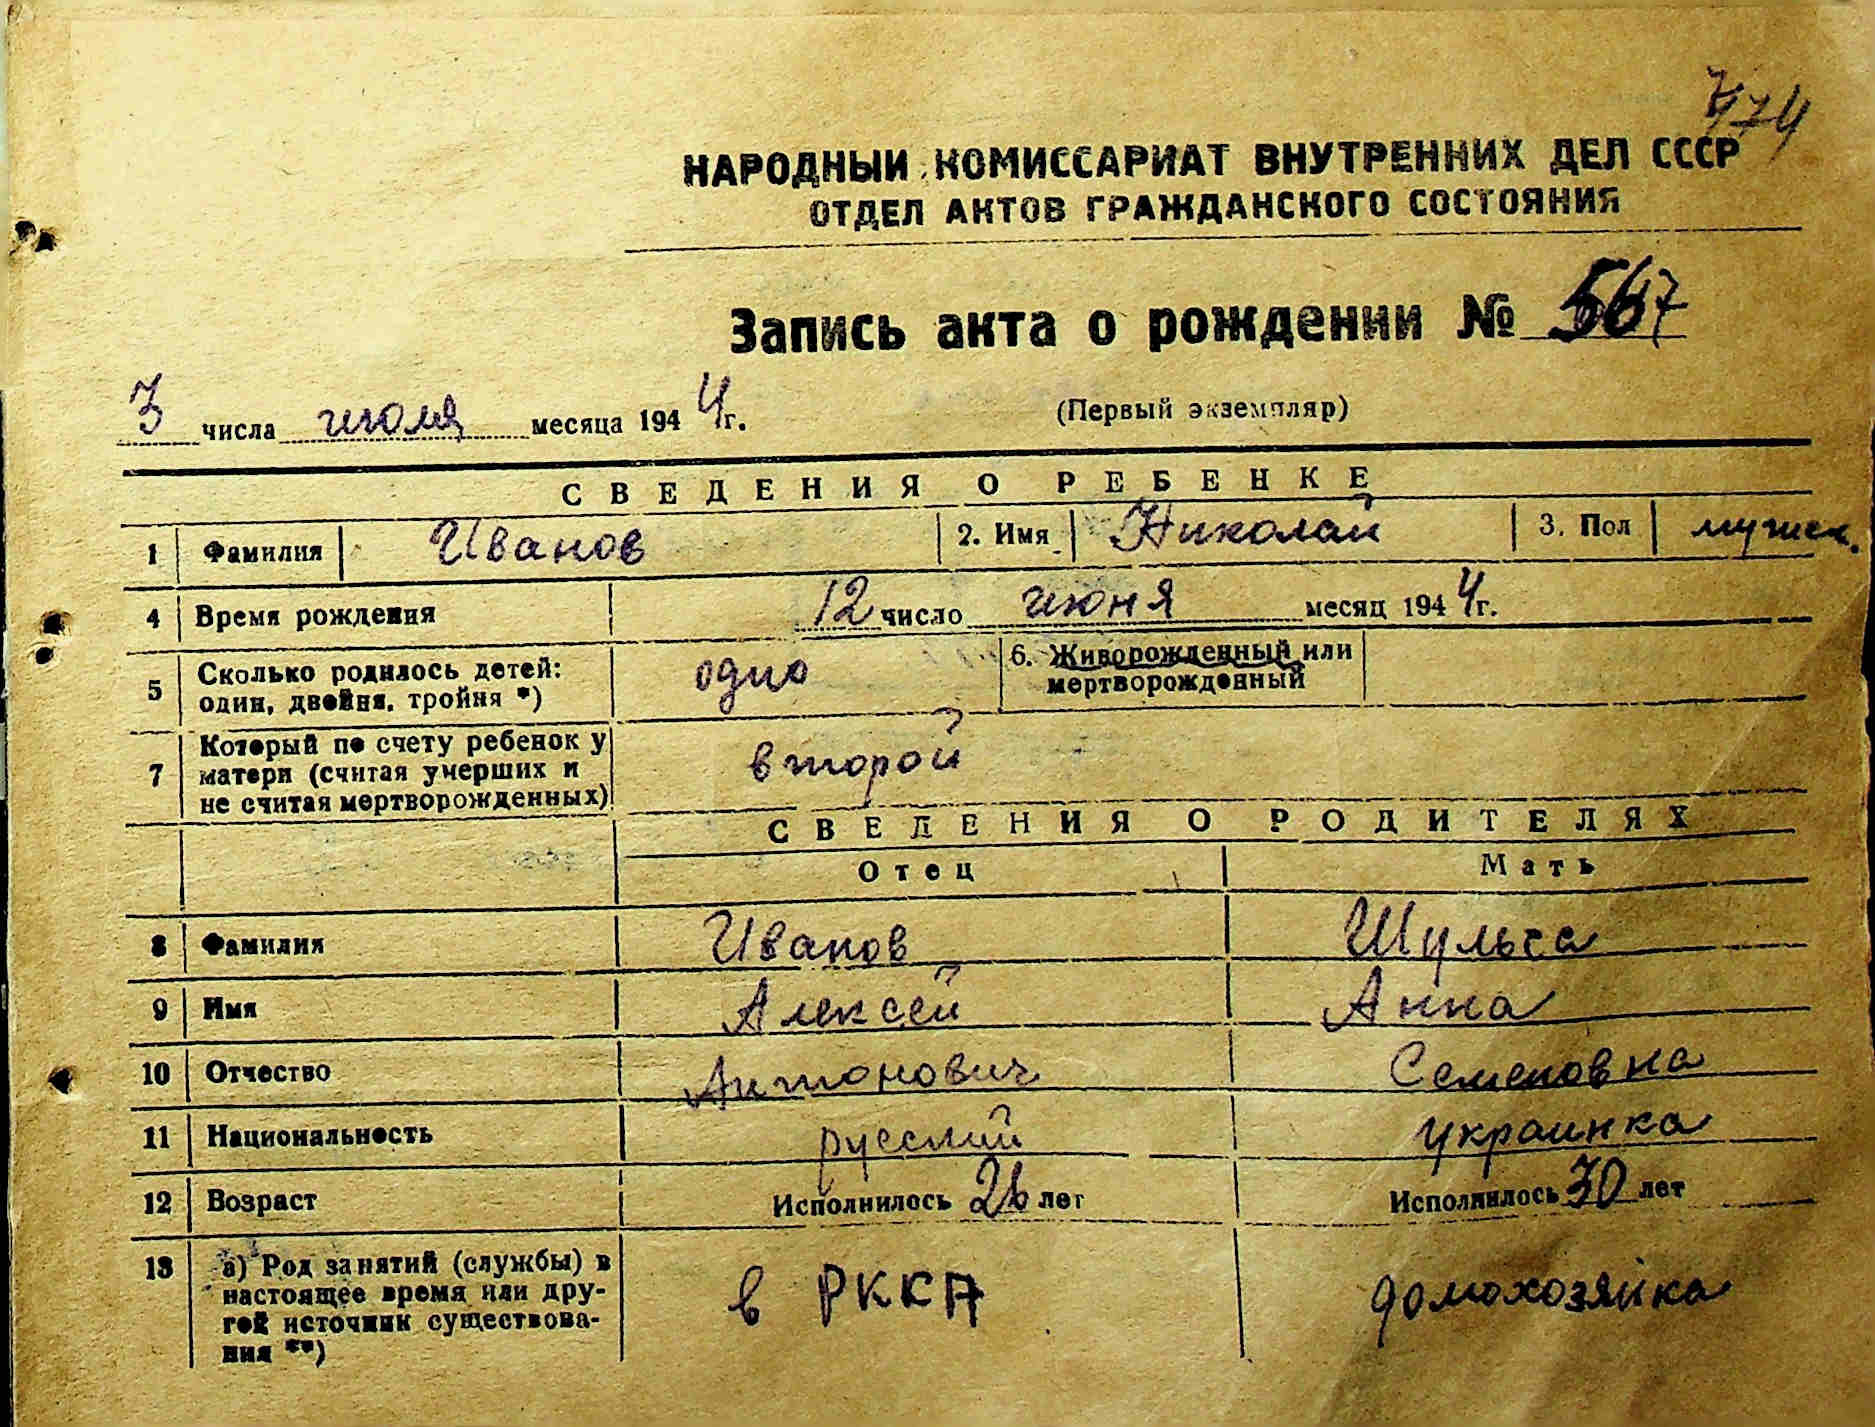 774
НАРОДНЫЙ КОМИССАРИАТ ВНУТРЕННИХ ДЕЛ СССР
ОТДЕЛ АКТОВ ГРАЖДАНСКОГО СОСТОЯНИЯ
Запись акта о рождении № 567
3 числа июля месяца 1944г. (Первый экземпляр)
СВЕДЕНИЯ О РЕБЕНКЕ
1 Фамилия Иванов 2. Имя Николай 3. Пол мужск.
4 Время рождения 12 число июня месяц 1944г.
5 Сколько родилось детей: один, двойня, тройня *) одно 6. Живорожденный или мертворожденный
7 Который по счету ребенок у матери (считая умерших и не считая мертворожденных) второй
СВЕДЕНИЯ О РОДИТЕЛЯХ
Отец Мать
8 Фамилия Иванов Шульга
9 Имя Алексей Анна
10 Отчество Антонович Семеновна
11 Национальность русский украинка
12 Возраст Исполнилось 26 лет Исполнилось 30 лет
13 а) Род занятий (службы) в настоящее время или другой источник существования **) в РККА домохозяйка